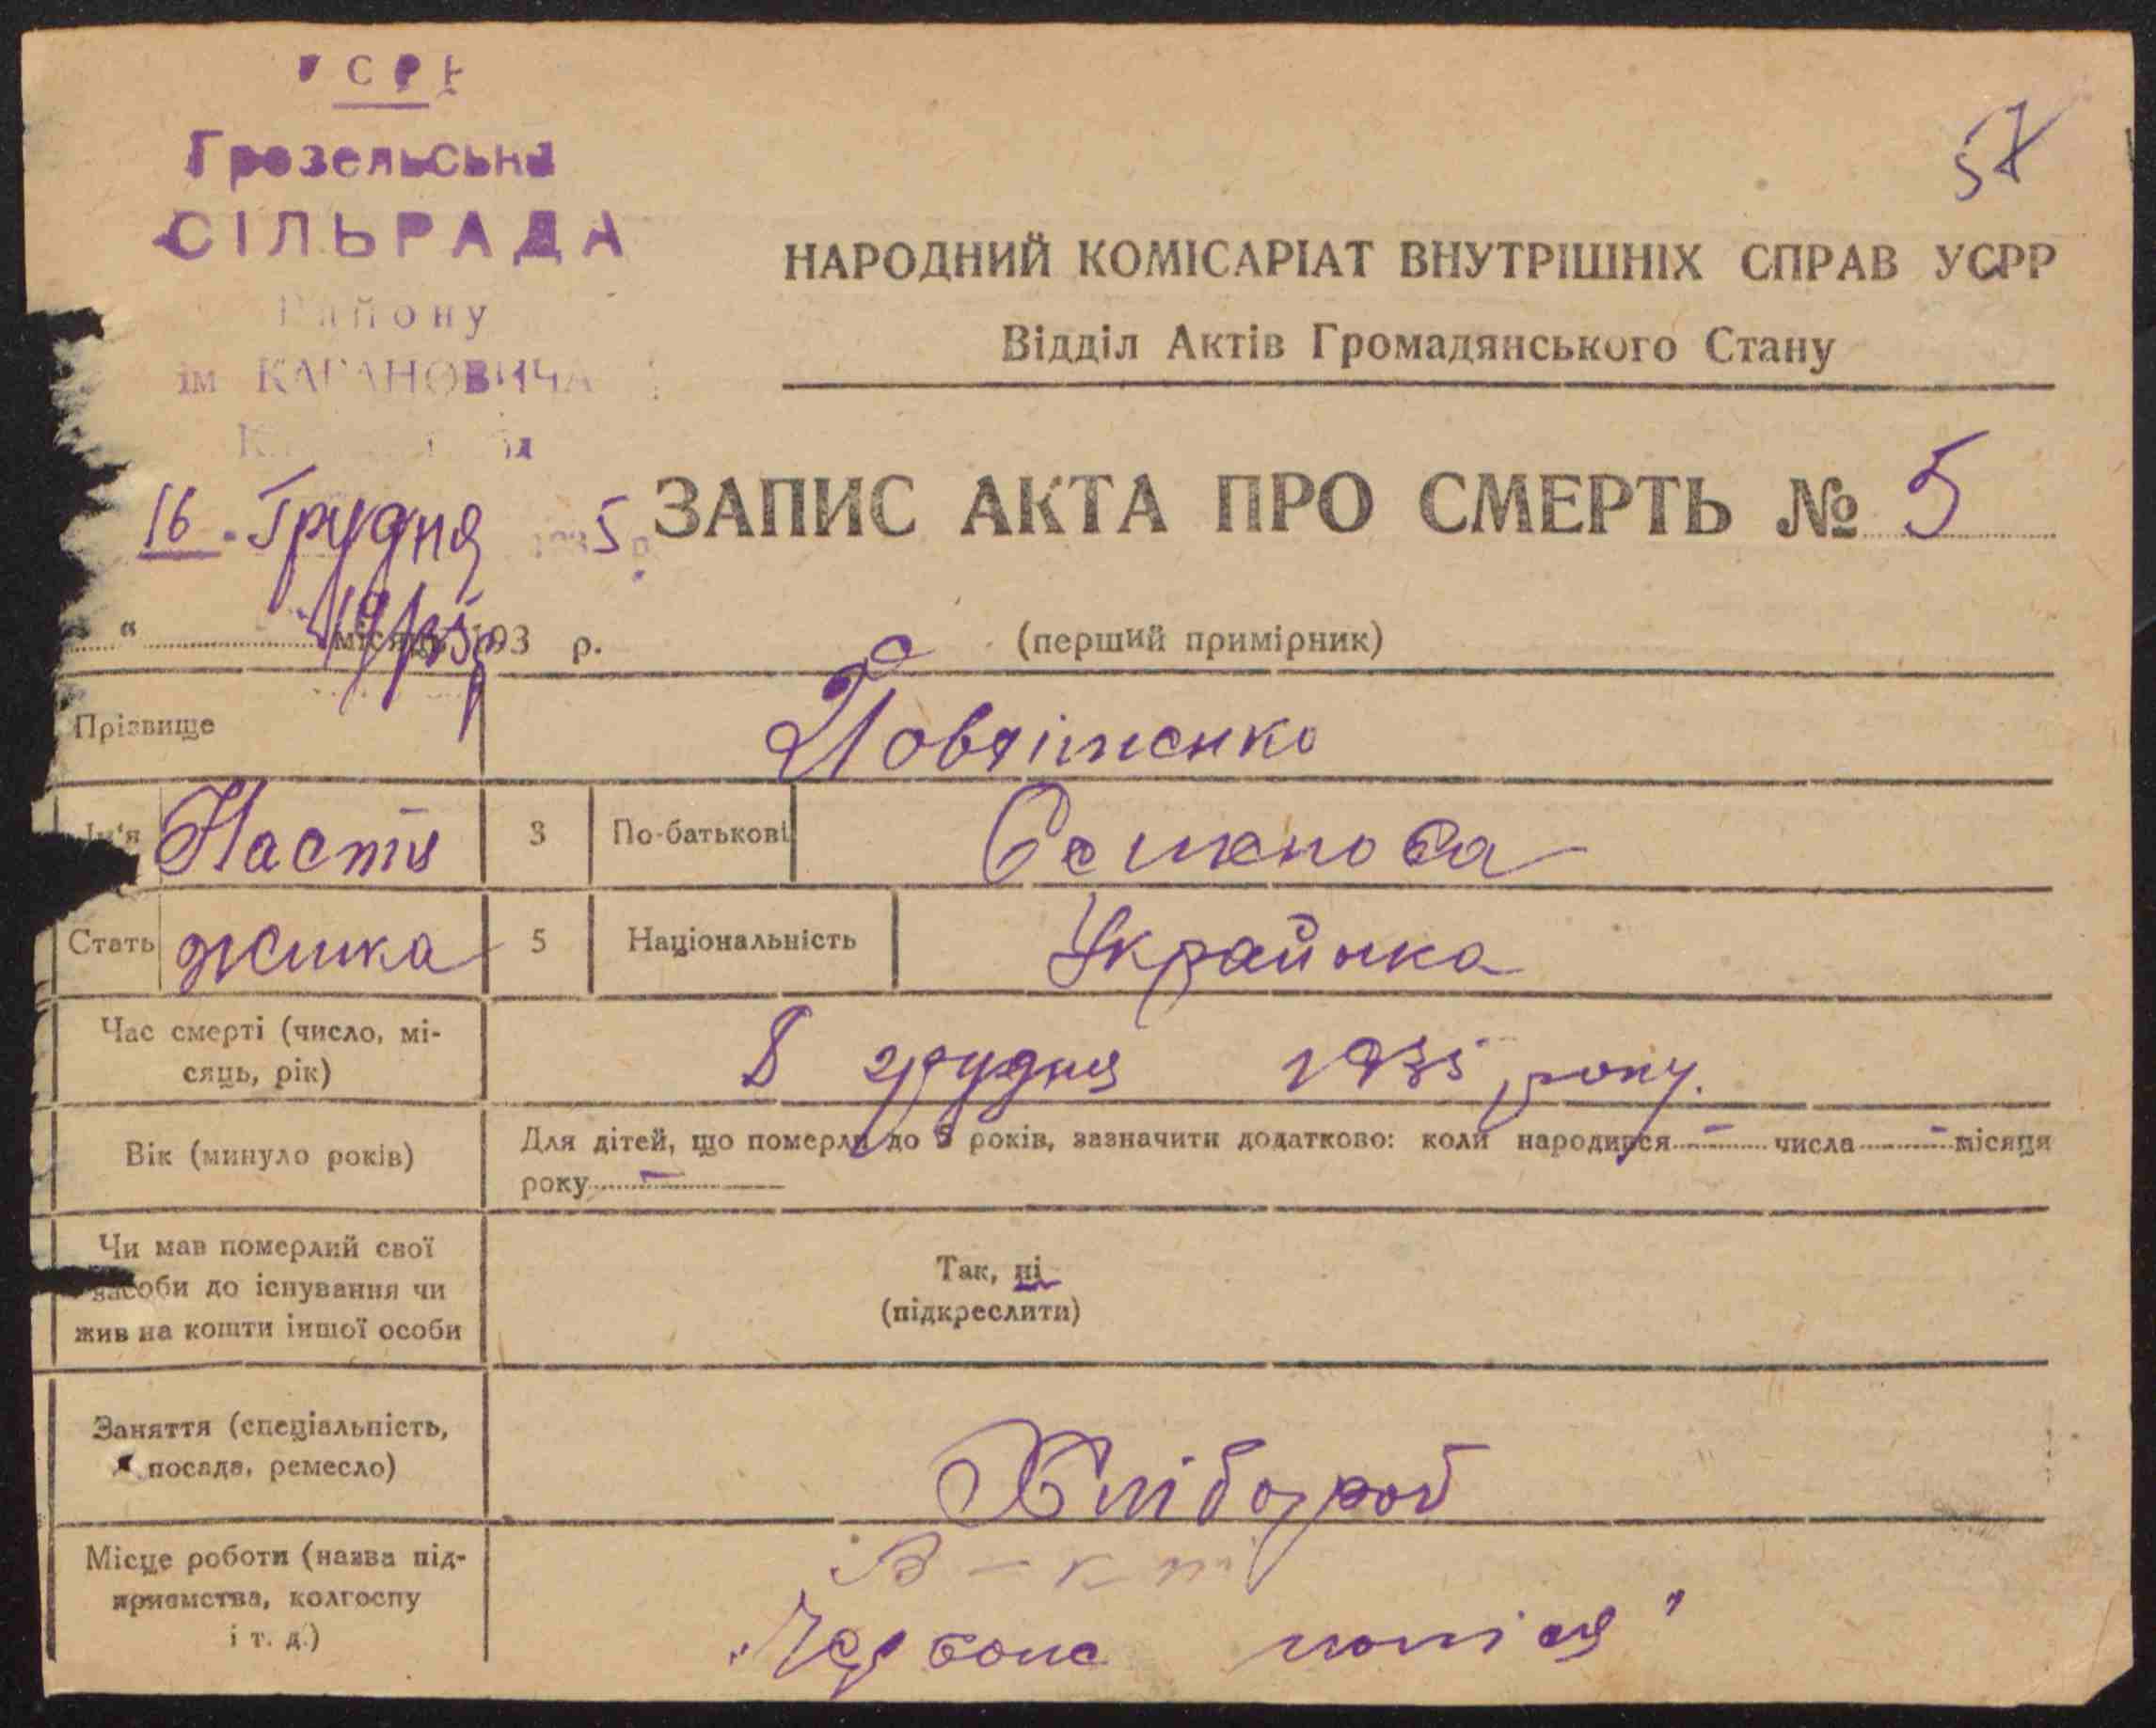 УСРР
57
Грозельська
СІЛЬРАДА
Району
ім КАГАНОВИЧА
НАРОДНИЙ КОМІСАРІАТ ВНУТРІШНІХ СПРАВ УСРР
Відділ Актів Громадянського Стану
16 Грудня 1935 р.
ЗАПИС АКТА ПРО СМЕРТЬ № 5
" місяця 193 р.
(перший примірник)
Прізвище
Ім'я Настя 3 По-батькові Семенова
Стать жінка 5 Національність Українка
Час смерті (число, мі-
сяць, рік) 8 грудня 1935 року.
Вік (минуло років)
Для дітей, що померли до 5 років, зазначити додатково: коли народився – числа – місяця
року –
Чи мав померлий свої
засоби до існування чи
жив на кошти іншої особи
Так, ні
(підкреслити)
Заняття (спеціальність,
посада, ремесло) Хлібороб
Місце роботи (назва під-
приємства, колгоспу
і т. д.)